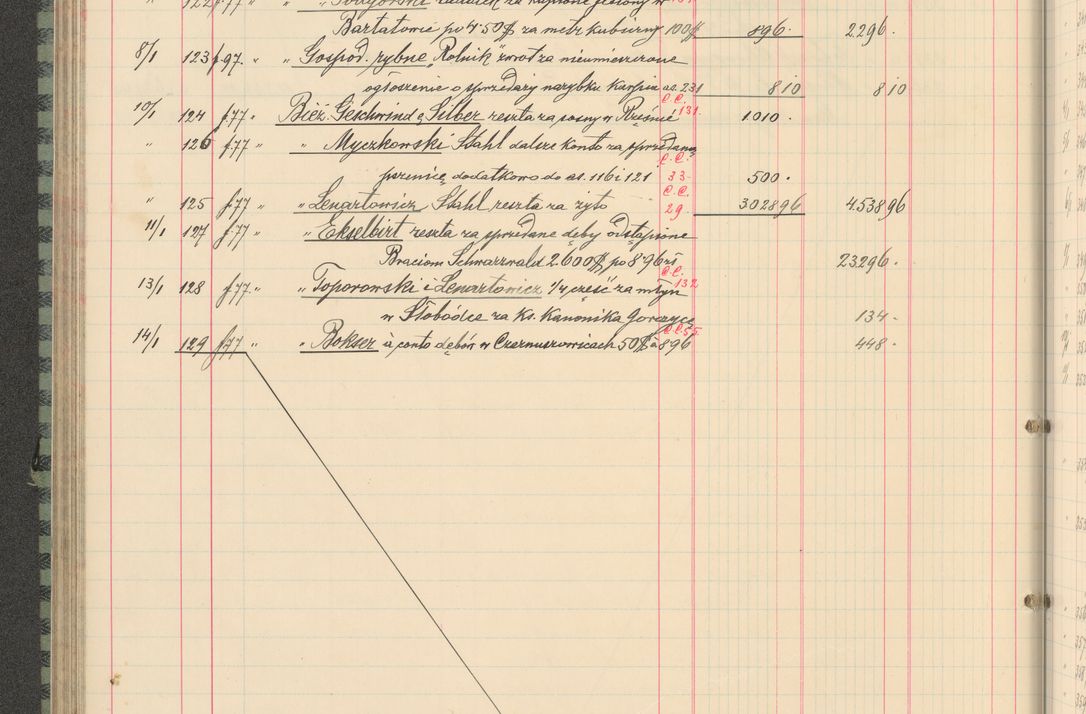 " 122 f.77 " " zadatek za kupione jesiony w
Bartatowie po 7·50 $ za metr kubiczny 100 $ 896· 2296·
8/1 123 f.97. " " Gospod. rybne "Rolnik" zwrot za nieumieszczone
ogłoszenie o sprzedaży narybku karpia as. 231 8 10 8 10
10/1 124 f.77 " Bież. Geschwind & Silber reszta za sosny w Rzęśnie C.C. 131. 1010·
" 126 f.77 " " Myczkowski Stahl dalsze konto za sprzedaną
pszenicę dodatkowo do as. 116 i 121 C.C. 33- 500·
" 125 f.77 " " Lenartowicz Stahl reszta za żyto C.C. 29. 3028 96 4538 96
11/1 127 f.77 " " Ekselbirt reszta za sprzedane dęby odstąpione
Braciom Schwarzwald 2.600 $ po 8·96 zł 23296·
13/1 128 f.77 " " Toporowski i Lenartowicz 1/4 część za młyn C.C. 132
w Słobódce za ks. Kanonika Gorzycę 134-
14/1 129 f.77 " " Bokser à conto dębów w Czarnuszowicach 50 $ à 896 C.C. 55. 448·